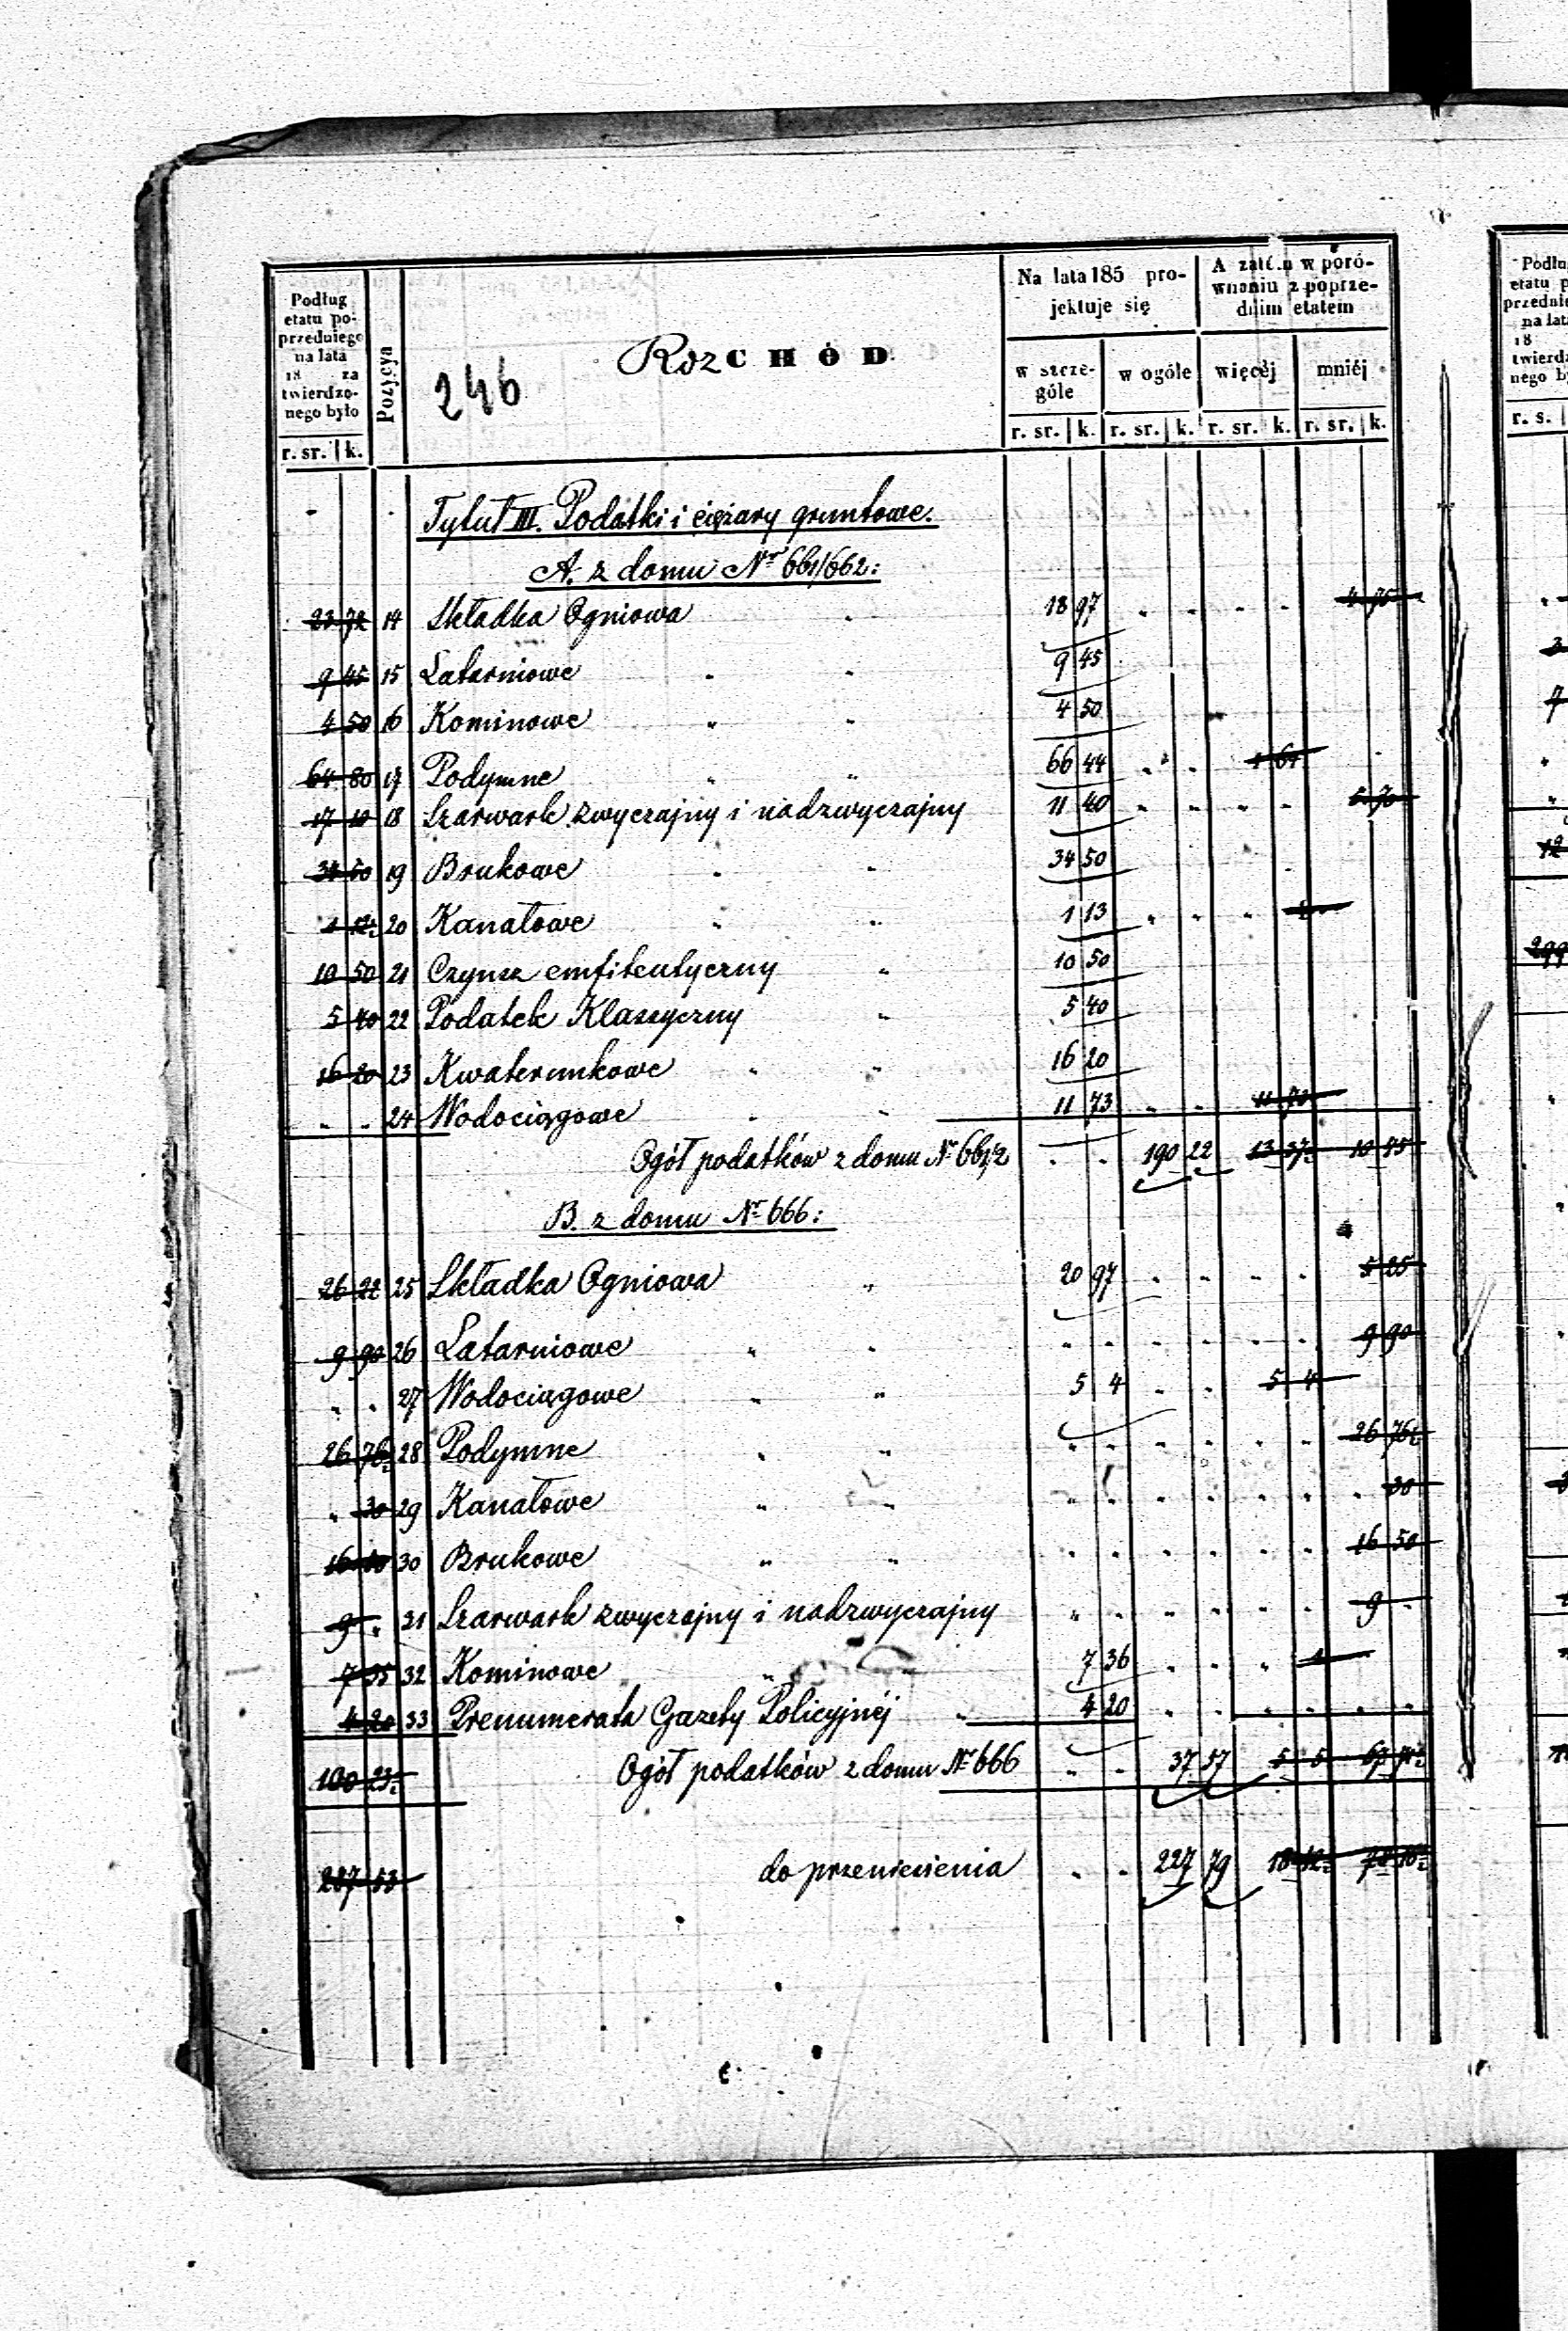 Podług etatu poprzedniego na lata 18 zatwierdzonego było
r. sr. k.
Pozycya
246
RozCHÓD
Na lata 185 projektuje się
w szczególe
w ogóle
r. sr. k. r. sr. k.
A zatém w porównaniu z poprzednim etatem
więcéj
mniéj
r. sr. k. r. sr. k.
Tytuł III. Podatki i ciężary gruntowe.
A. z domu Nr 661/662:
23 72 14 Składka Ogniowa " 18 97 " " " " 4 75
9 45 15 Latarniowe " " 9 45
4 50 16 Kominowe " " 4 50
64 80 17 Podymne " " 66 44 " " 1 64
17 10 18 Szarwark zwyczajny i nadzwyczajny 11 40 " " " " 5 70
34 50 19 Brukowe " " 34 50
1 12½ 20 Kanałowe " " 1 13 " " "
10 50 21 Czynsz emfiteutyczny " 10 50
5 40 22 Podatek Klassyczny " 5 40
16 20 23 Kwaterunkowe " " 16 20
" " 24 Wodociągowe " " 11 73 " " 11 73
Ogół podatków z domu Nr 661/2 " " 190 22 13 37½ 10 45
B. z domu Nr 666:
26 22 25 Składka Ogniowa " 20 97 " " " " 5 25
9 90 26 Latarniowe " " " " " " " " 9 90
" " 27 Wodociągowe " " 5 4 " " 5 4
26 76½ 28 Podymne " " " " " " " " 26 76½
" 30 29 Kanałowe " " " " " " " " " 30
16 50 30 Brukowe " " " " " " " " 16 50
9 " 31 Szarwark zwyczajny i nadzwyczajny " " " " " " 9 "
7 35 32 Kominowe " 7 36 " " " 1
4 20 33 Prenumerata Gazety Policyjnéj " 4 20 " " " " " "
100 23½ Ogół podatków z domu Nr 666 " " 37 57 5 5 67 71½
287 53 do przeniesienia " " 227 79